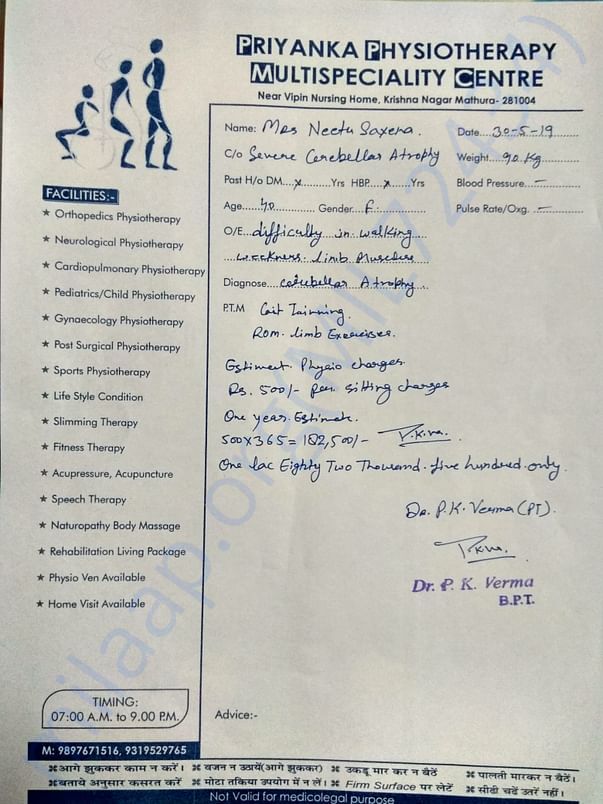 PRIYANKA PHYSIOTHERAPY
MULTISPECIALITY CENTRE
Near Vipin Nursing Home, Krishna Nagar Mathura- 281004
Name: Mrs Neetu Saxena. Date 30-5-19
C/o Severe Cerebellar Atrophy Weight 90 Kg
Past H/o DM x Yrs HBP x Yrs Blood Pressure -
Age 40 Gender F Pulse Rate/Oxg. -
O/E difficulty in walking
weekness limb Muscles
Diagnose cerebellar Atrophy
P.T.M Gait Tainning.
Rom. limb Exercises.
Estiment Physio charges
Rs. 500/- per sitting charges
One year Estimate.
500x365 = 182,500/-
One lac Eighty Two Thousand five hundred only.
Dr. P.K. Verma (PT).
Dr. P. K. Verma
B.P.T.
Advice:-
FACILITIES:-
★ Orthopedics Physiotherapy
★ Neurological Physiotherapy
★ Cardiopulmonary Physiotherapy
★ Pediatrics/Child Physiotherapy
★ Gynaecology Physiotherapy
★ Post Surgical Physiotherapy
★ Sports Physiotherapy
★ Life Style Condition
★ Slimming Therapy
★ Fitness Therapy
★ Acupressure, Acupuncture
★ Speech Therapy
★ Naturopathy Body Massage
★ Rehabilitation Living Package
★ Physio Ven Available
★ Home Visit Available
TIMING:
07:00 A.M. to 9.00 P.M.
M: 9897671516, 9319529765
⌘ आगे झुककर काम न करें। ⌘ वजन न उठायें(आगे झुककर) ⌘ उकडू मार कर न बैठें ⌘ पालती मारकर न बैठें।
⌘ बताये अनुसार कसरत करें ⌘ मोटा तकिया उपयोग में न लें। ⌘ Firm Surface पर लेटें ⌘ सीढी चढें उतरें नहीं।
Not Valid for medicolegal purpose